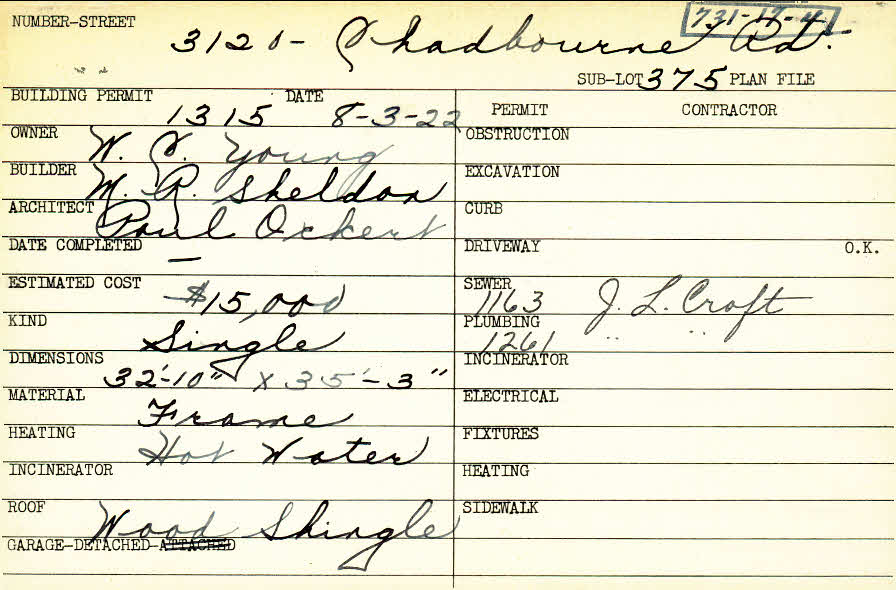 731-17-4
NUMBER-STREET 3120- Chadbourne Rd.
SUB-LOT 375 PLAN FILE
BUILDING PERMIT 1315 DATE 8-3-22
PERMIT CONTRACTOR
OWNER W. C. Young
OBSTRUCTION
BUILDER M. R. Sheldon
EXCAVATION
ARCHITECT Paul Ockert
CURB
DATE COMPLETED —
DRIVEWAY O.K.
ESTIMATED COST $15,000
SEWER 1163 J. L. Croft
KIND Single
PLUMBING 1261 " " "
DIMENSIONS 32'-10" X 35'-3"
INCINERATOR
MATERIAL Frame
ELECTRICAL
HEATING Hot Water
FIXTURES
INCINERATOR
HEATING
ROOF Wood Shingle
SIDEWALK
GARAGE-DETACHED-ATTACHED